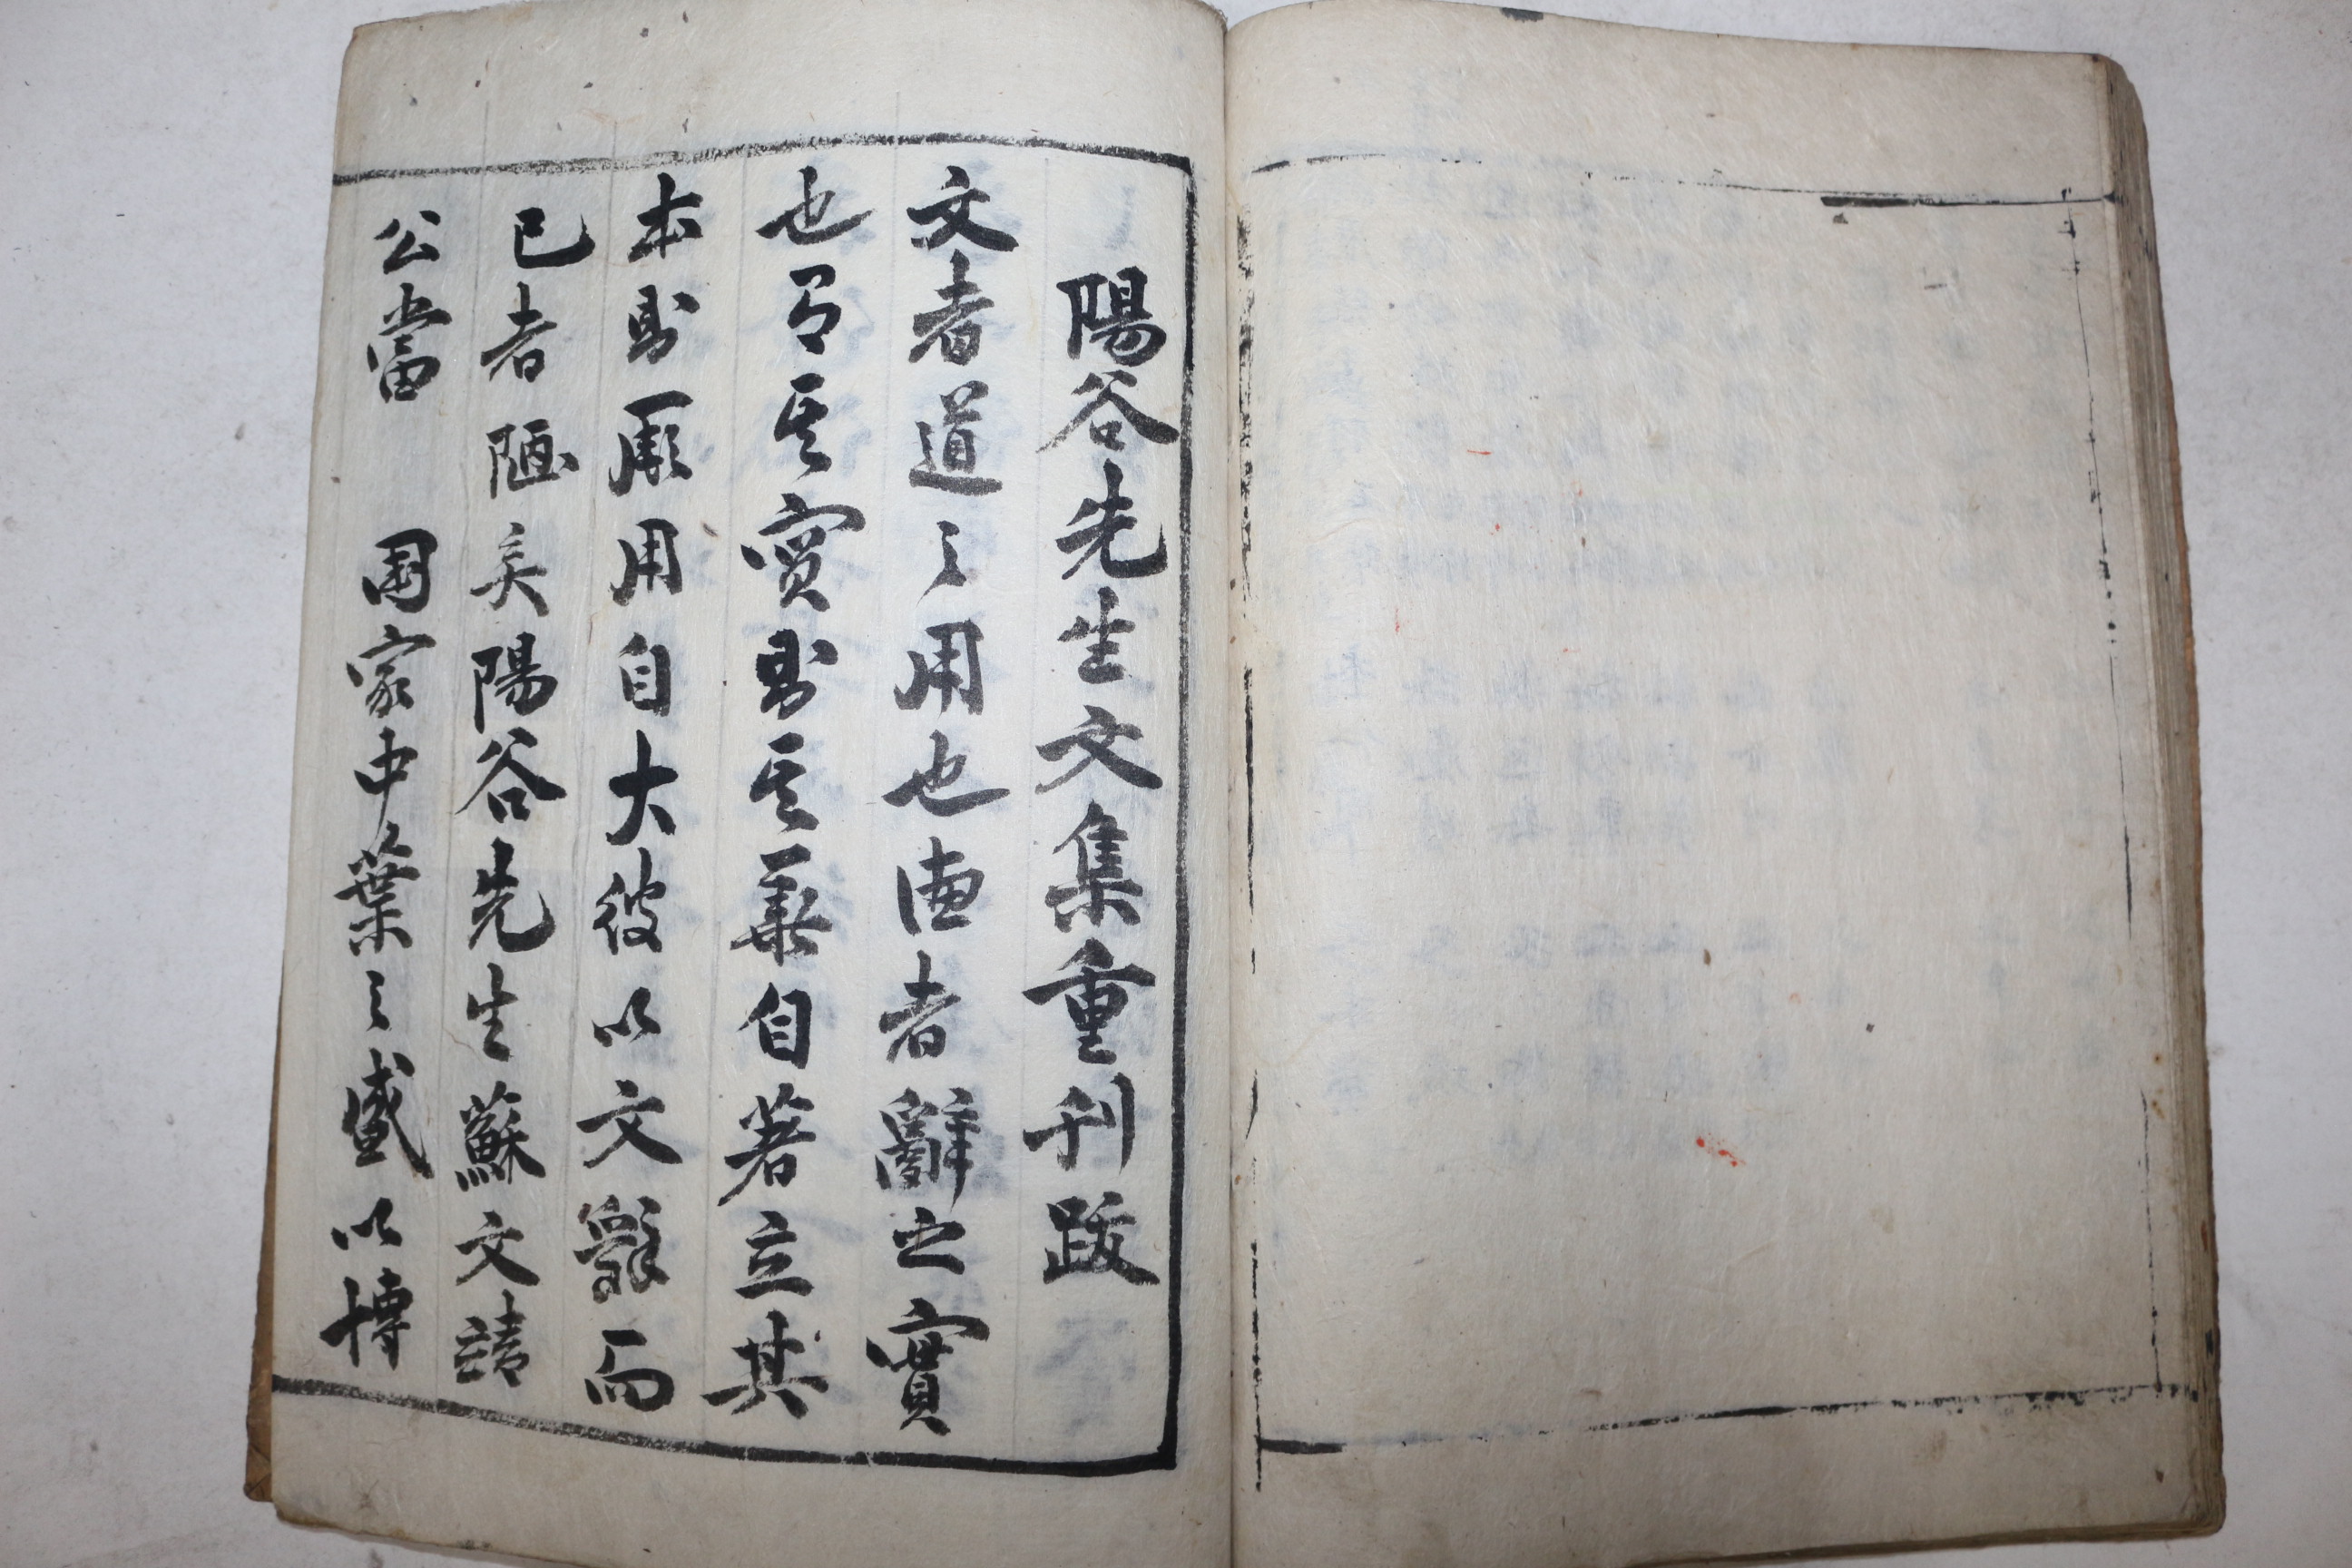 陽谷先生文集重刊跋
文者道之用也德者辭之實
也有其實則其華自著立其
本則厥用自大彼以文辭而
已者陋矣陽谷先生蘇文靖
公當 國家中葉之盛以博